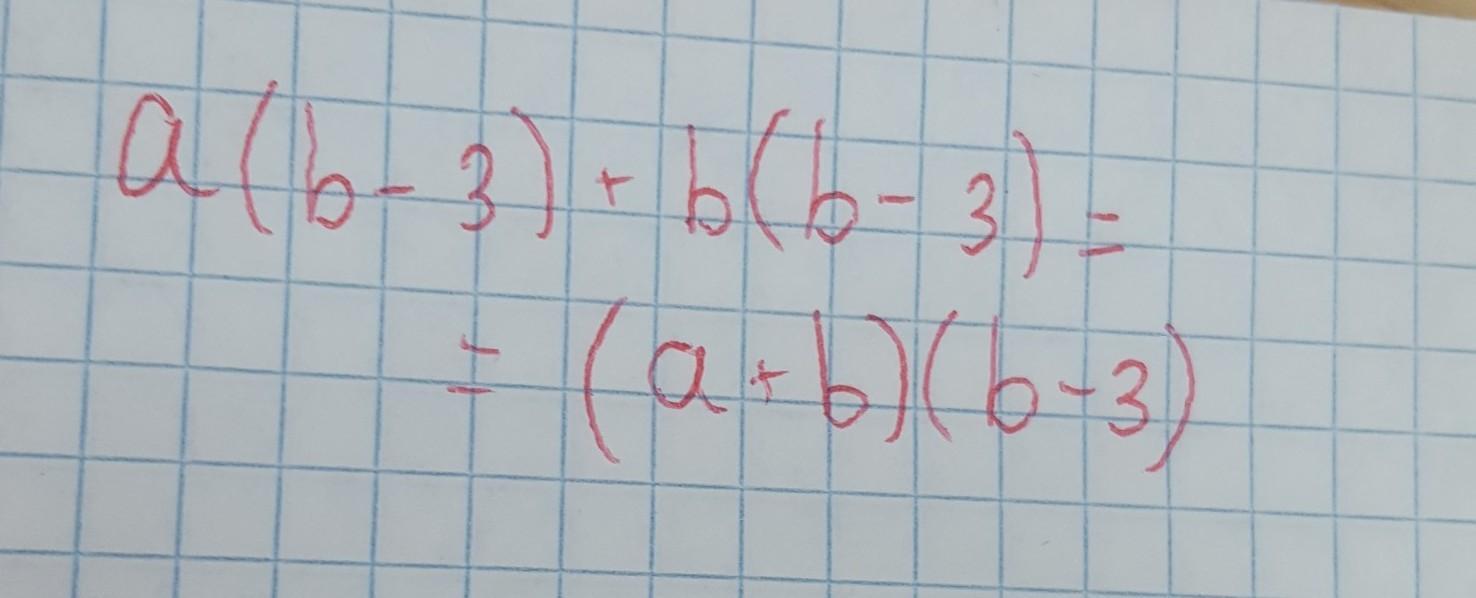 a(b-3)+b(b-3)=
=(a+b)(b-3)